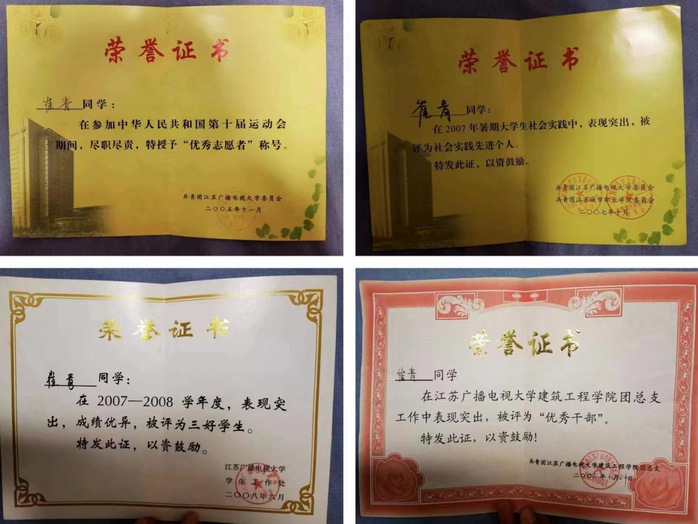 荣誉证书
崔青同学：
在参加中华人民共和国第十届运动会
期间，尽职尽责，特授予“优秀志愿者”称号。
共青团江苏广播电视大学委员会
二〇〇五年十一月
荣誉证书
崔青同学：
在 2007 年暑期大学生社会实践中，表现突出，被
评为社会实践先进个人。
特发此证，以资鼓励。
共青团江苏广播电视大学委员会
共青团江苏城市职业学院委员会
二〇〇七年十月
荣誉证书
崔青同学：
在 2007—2008 学年度，表现突
出，成绩优异，被评为三好学生。
特发此证，以资鼓励。
江苏广播电视大学
学生工作处
二〇〇八年六月
荣誉证书
崔青同学
在江苏广播电视大学建筑工程学院团总支
工作中表现突出，被评为“优秀干部”。
特发此证，以资鼓励！
共青团江苏广播电视大学建筑工程学院团总支